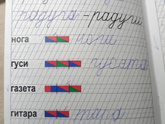 радуга - радуги
нога ноги
гуси гусята
газета
гитара